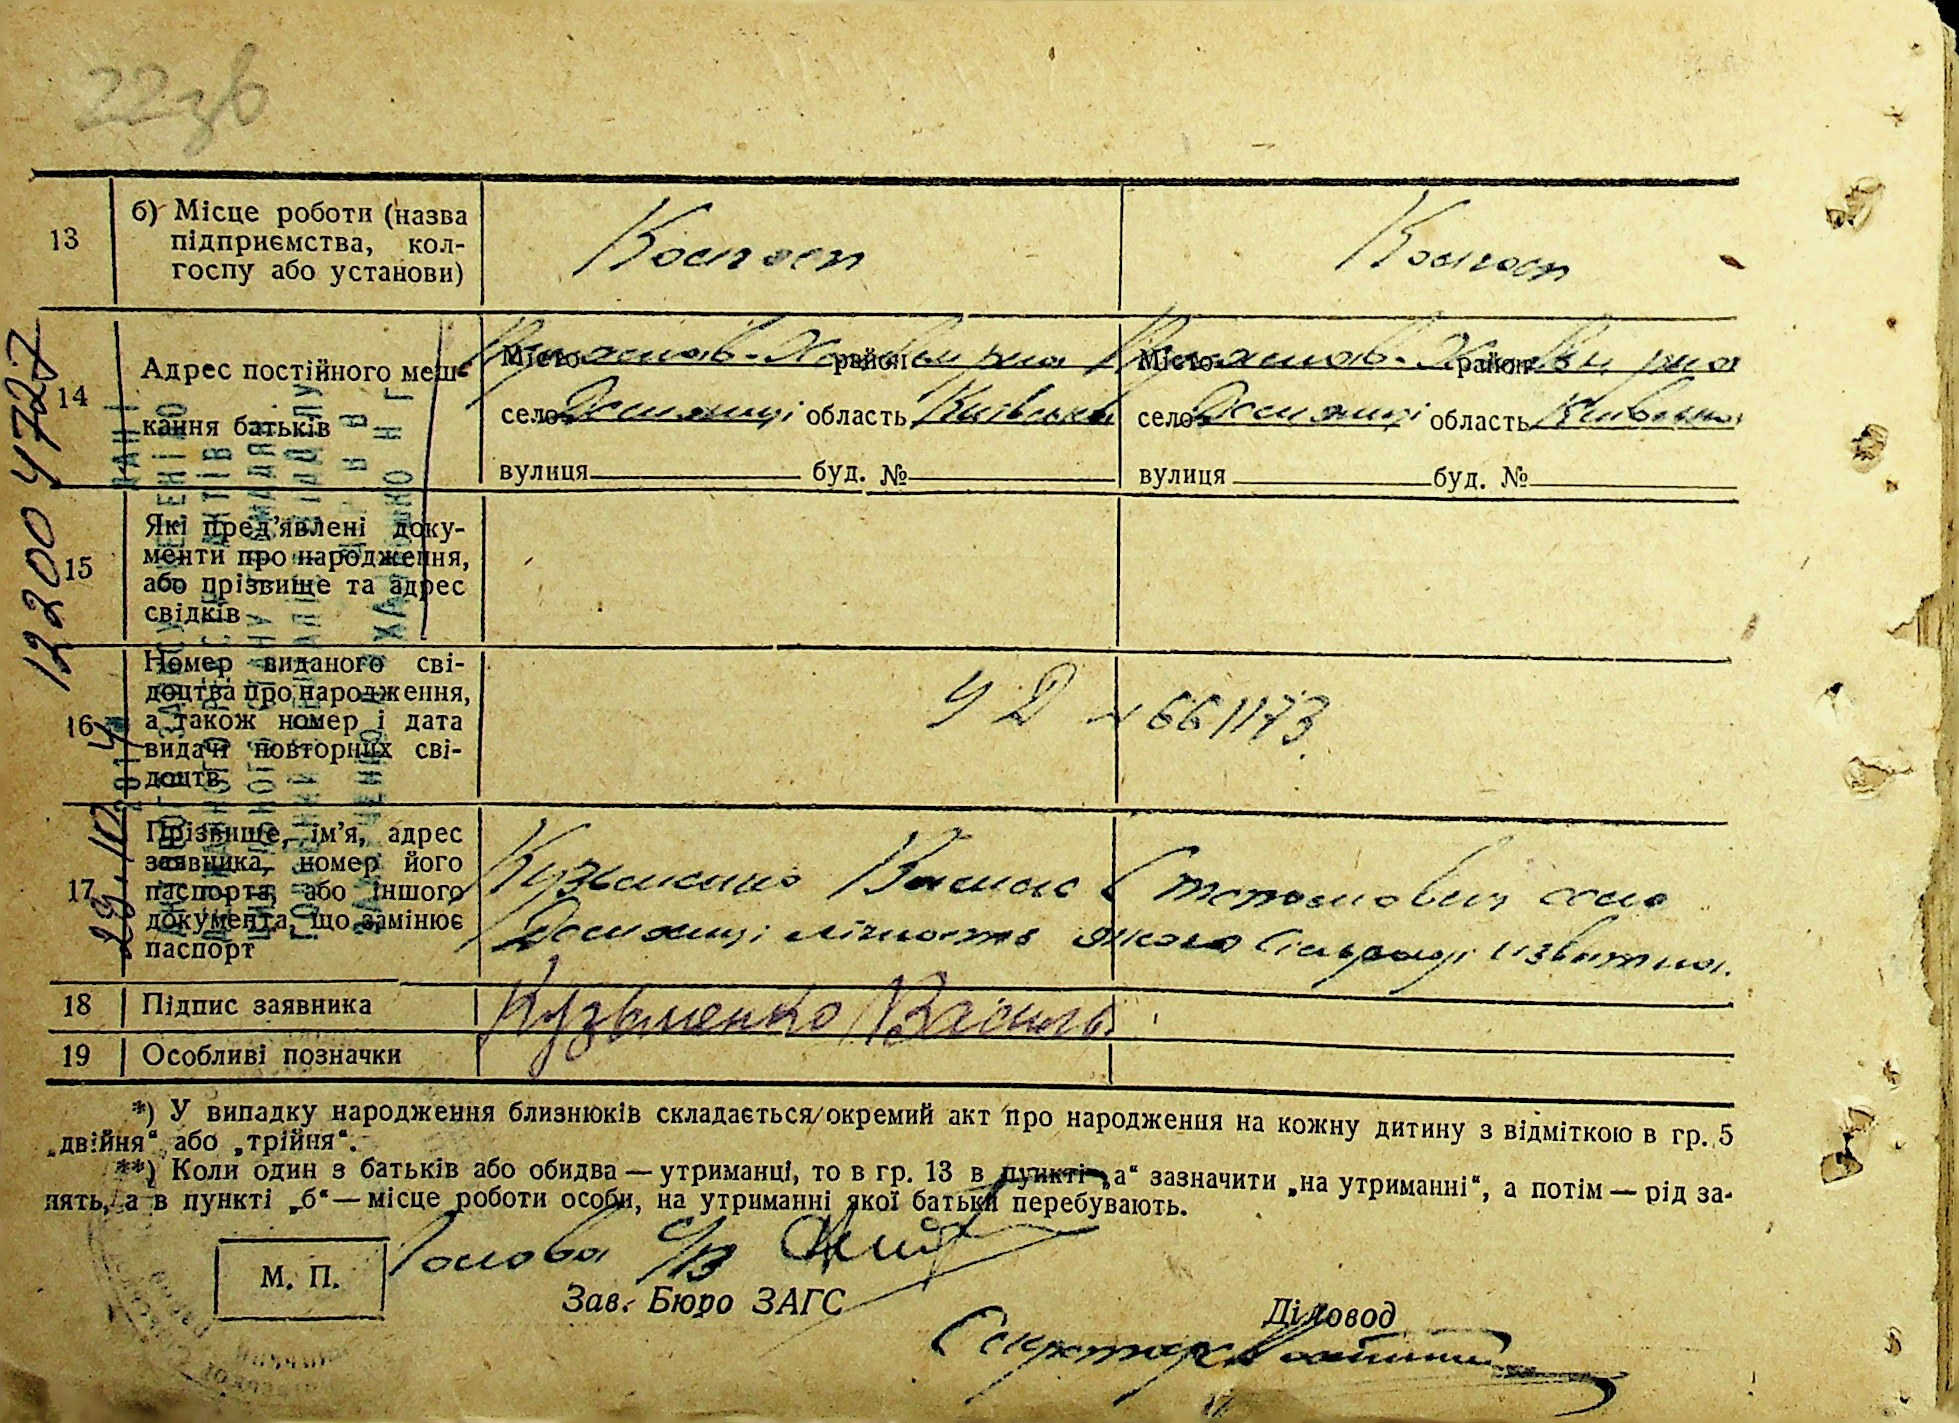 22зв
13 б) Місце роботи (назва підприємства, кол-госпу або установи) Колгосп Колгосп
14 Адрес постійного меш-кання батьків
Місто Переяслав-Хмельн район Місто Переяслав-Хмельн район
село область Київська село область Київська
вулиця буд. № вулиця буд. №
15 Які пред'явлені доку-
менти про народження,
або прізвище та адрес
свідків
16 Номер виданого сві-
доцтва про народження,
а також номер і дата
видачі повторних сві-
доцтв
УД № 661173
17 Прізвище, ім'я, адрес
заявника, номер його
паспорта, або іншого
документа, що замінює
паспорт
Кузьменко Василь Степанович село
лічность якого сільраді
18 Підпис заявника Кузьменко Василь
19 Особливі позначки
12200 4727
29.10 2014
*) У випадку народження близнюків складається окремий акт про народження на кожну дитину з відміткою в гр. 5
„двійня“ або „трійня“.
**) Коли один з батьків або обидва — утриманці, то в гр. 13 в пункті „а“ зазначити „на утриманні“, а потім — рід за-
нять, а в пункті „б“ — місце роботи особи, на утриманні якої батьки перебувають.
М. П. Голова с/в
Зав. Бюро ЗАГС
Діловод
Секретар